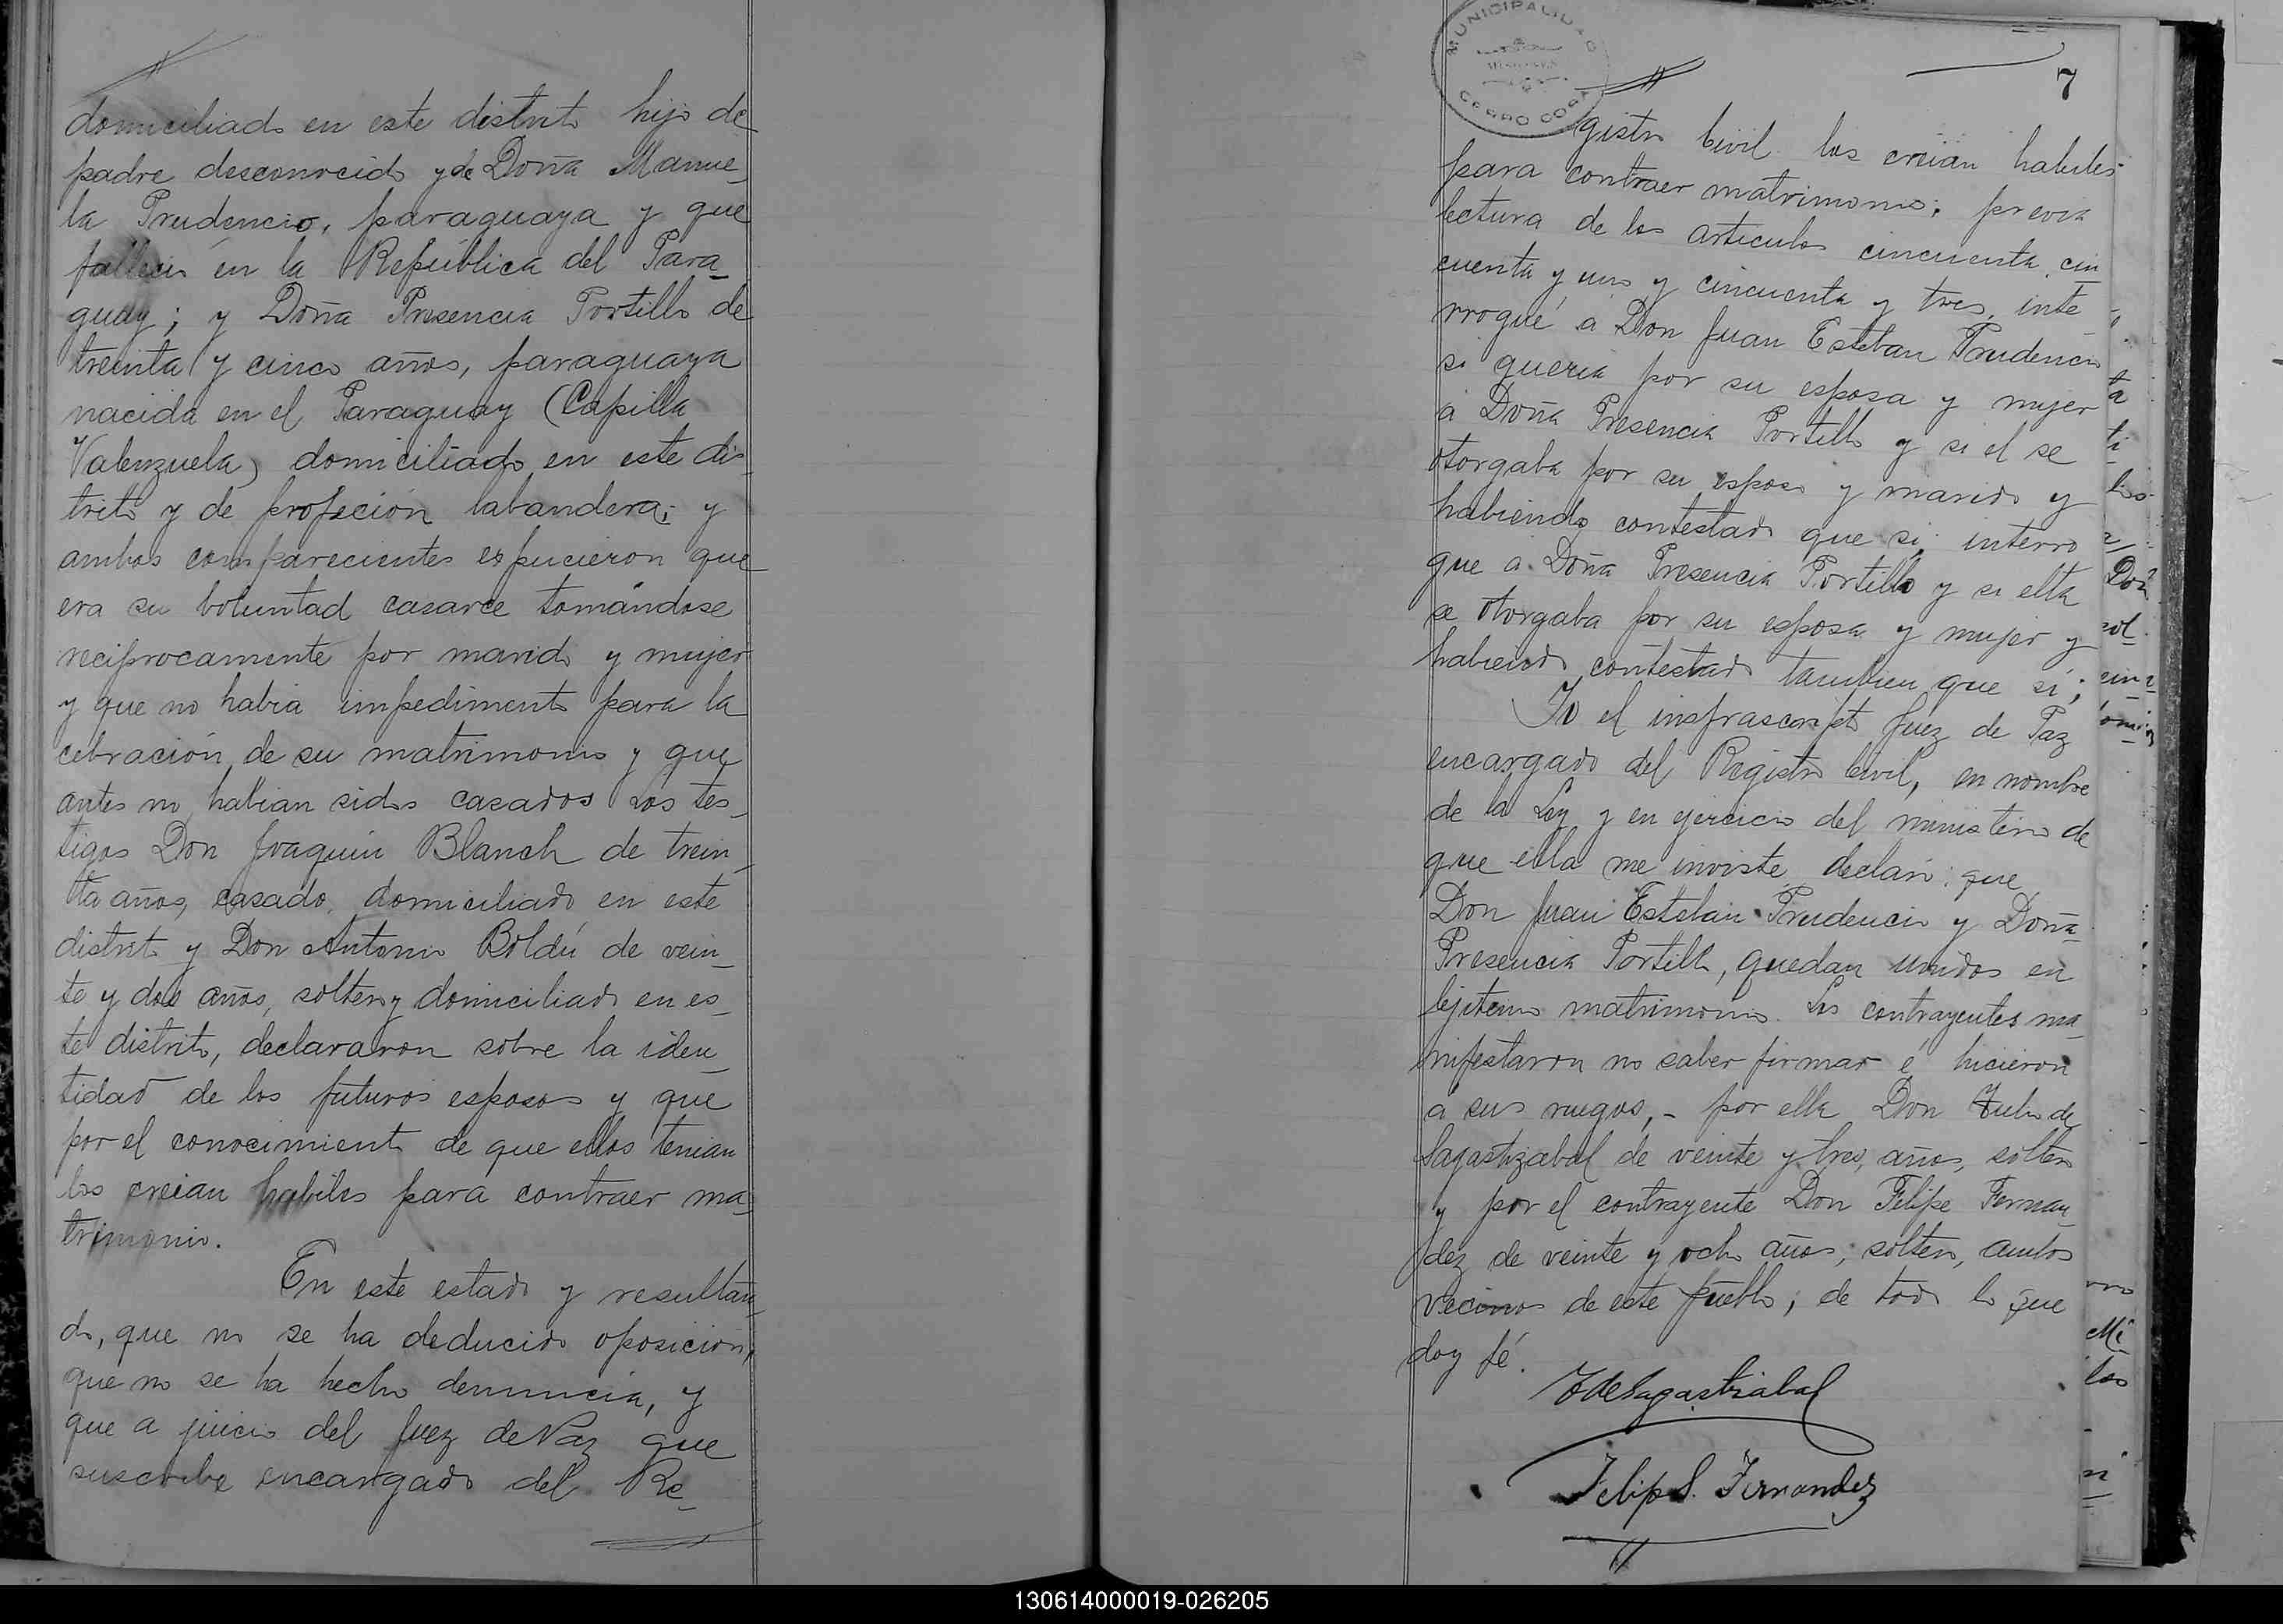 domiciliado en este distrito hijo de
padre desconocido y de Doña Manue_
la Prudencio, paraguaya y que
falleció en la República del Para_
guay; y Doña Presencia Portillo de
treinta y cinco años, paraguaya
nacida en el Paraguay (Capilla
Valenzuela) domiciliado en este dis_
trito y de profeción labandera; y
ambos comparecientes espucieron que
era su boluntad casarce tomándose
reciprocamente por marido y mujer
y que no habia impedimento para la
cebración de su matrimonio y que
antes no habian sidos casados Los tes_
tigos Don Joaquin Blanch de trein_
ta años, casado, domiciliado en este
distrito y Don Antonio Boldú de vein_
te y dos años, soltero y domiciliado en es_
te distrito, declararon sobre la iden_
tidad de los futuros esposos y que
por el conocimiento de que ellos tenian
los creian habiles para contraer ma_
trimonio.
En este estado y resultan_
do, que no se ha deducido oposición,
que no se ha hecho denuncia, y
que a juicio del Juez de Paz que
suscribe encargado del Re_
MUNICIPALIDAD
CERRO CORA
7
gistro Civil los creian habiles
para contraer matrimonio; previa
lectura de los articulos cincuenta, cin_
cuenta y uno y cincuenta y tres, inte_
rroqué a Don Juan Esteban Prudencio
si queria por su esposa y mujer
a Doña Presencia Portillo y si el se
otorgaba por su esposo y marido y
habiendo contestado que si; interro
que a Doña Presencia Portillo y si ella
se otorgaba por su esposa y mujer y
habiendo contestado tambien que sí;
Yo el insfrascripto Juez de Paz
encargado del Registro Civil, en nombre
de la Ley y en ejercicio del ministerio de
que ella me inviste declaro: que
Don Juan Esteban Prudencio y Doña
Presencia Portillo, quedan unidos en
lejitimo matrimonio. Los contrayentes ma_
nifestaron no saber firmar é hicieron
a sus ruegos,- por ella Don Julio de
Sagastizabal de veinte y tres, años, soltero
y por el contrayente Don Felipe Fernan_
dez de veinte y ocho años, soltero, ambos
vecinos de este pueblo; de todo lo que
doy fé.
J de Sagastizabal
Felip S. Fernandez
130614000019-026205